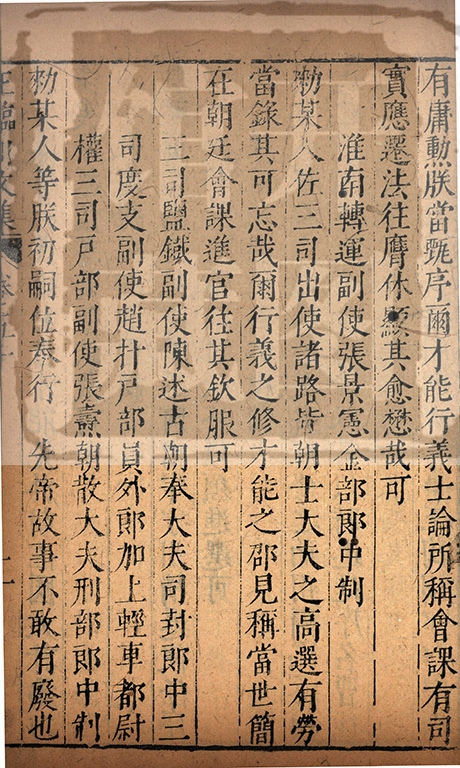 有庸勲朕當甄序爾才能行義士論所稱會課有司
實應遷法往膺休顯其愈懋哉可
淮南轉運副使張景憲金部郎中制
勑某人佐三司出使諸路皆朝士大夫之高選有勞
當錄其可忘哉爾行義之修才能之卲見稱當世簡
在朝廷會課進官往其欽服可
三司鹽鐵副使陳述古朝奉大夫司封郎中三
司度支副使趙抃戶部員外郎加上輕車都尉
權三司戶部副使張燾朝散大夫刑部郎中制
勑某人等朕初嗣位奉行先帝故事不敢有廢也
王臨川文集 卷五十